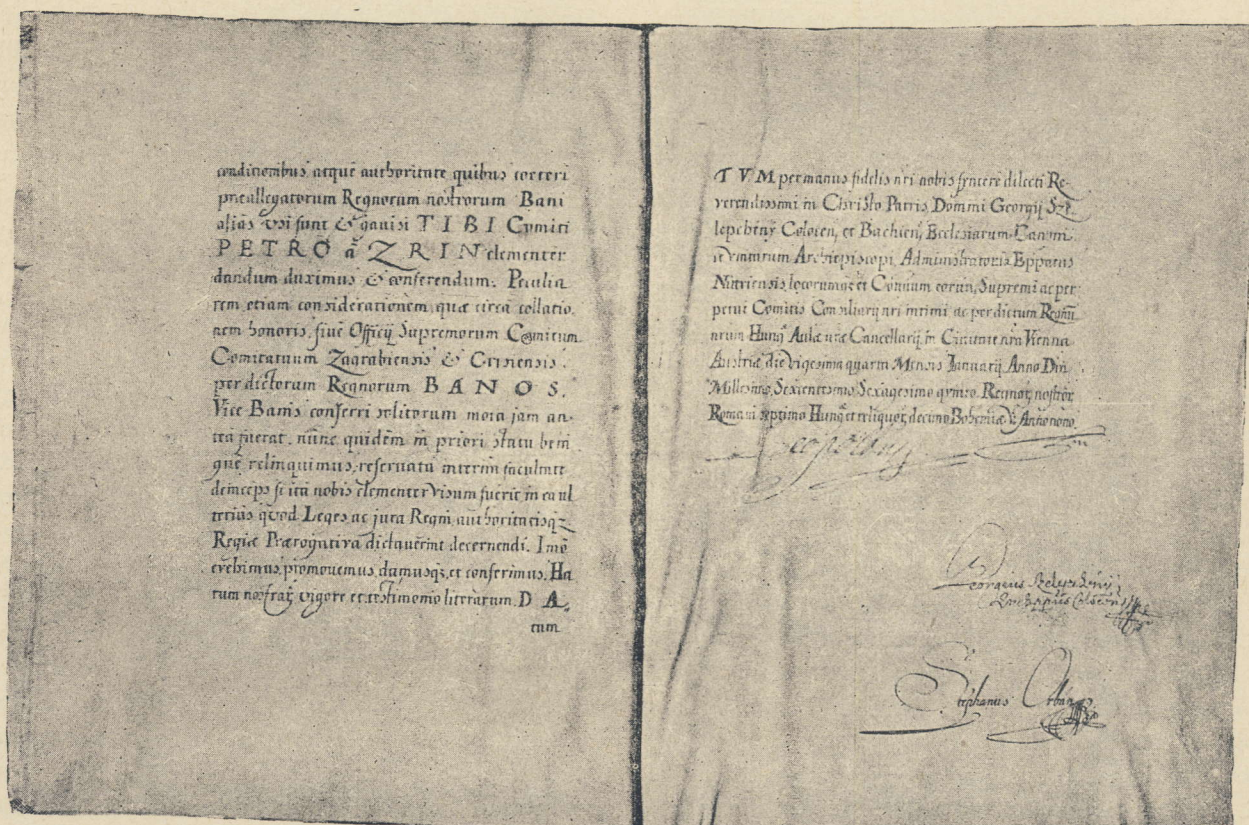 conditionibus atque authoritate quibus coeteri
preallegatorum Regnorum nostrorum Bani
aliàs vsi sunt & gauisi TIBI Comiti
PETRO à ZRIN clementer
dandum duximus & conferendum. Peculia
rem etiam considerationem, quæ circà collatio
nem honoris, siuè Officÿ Supremorum Comitum
Comitatuum Zagrabiensis & Crisiensis
per dictorum Regnorum BANOS.
Vice Banis conferri solitorum mota jam an-
teà fuerat, nunc quidèm in priori statu beni
gnè relinquimus, reseruatâ interim facultate
deinceps si ità nobis clementer visum fuerit in ea ul
terius quod Leges ac jura Regni authoritatisq;
Regiæ Prærogatiua dictauerint decernendi. Imò
erehimus, promouemus, damusq; et conferimus. Ha
rum nostrar, vigore et testimonio literarum. DA-
tum
TVM per manus fidelis nri nobis syncere dilecti Re-
verendissimi in Christo Patris, Domini Georgÿ Sze
lepcheny Colocen, et Bachien, Ecclesiarum Canoni
ce vnitarum Archiepiscopi, Administratoris Eppatus
Nittriensis, locorumq; et Comitatuum eorun, Supremi ac per-
petui Comitis Consiliarÿ nri intimi ac per dictum Regnū
nrum Hung, Aulæ nræ Cancellarÿ, in Ciuitate nrâ Vienna
Austriæ die vigesima quarta Mensis Ianuarÿ Anno Dni
Millesimo, Sexcentesimo Sexagesimo quinto. Regnor, nostror,
Romani septimo Hung, et reliquor, decimo Bohemiæ V: Anno nono
Leopoldus
Georgius Szelepchény
Archieppus Colocen
Stephanus Orbán